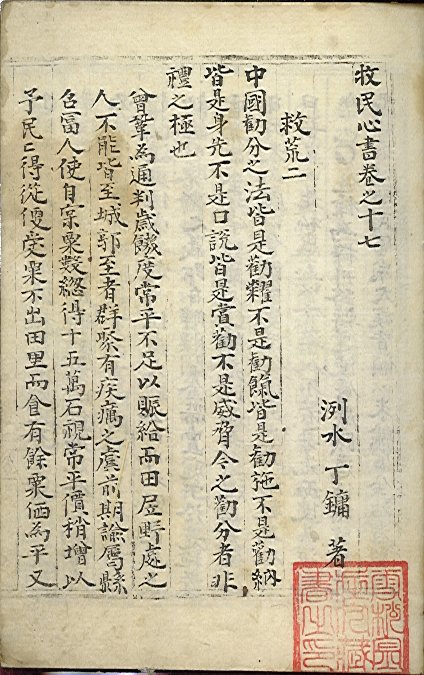 牧民心書卷之十七
洌水 丁鏞 著
救荒二
中國勸分之法皆是勸糶不是勸餼皆是勸施不是勸納
皆是身先不是口說皆是賞勸不是威脅今之勸分者非
禮之極也
曾鞏為通判歲饑度常平不足以賑給而田居野處之
人不能皆至城郭至者群聚有疾癘之虞前期諭屬縣
召富人使自實粟數緫得十五萬石視常平價稍增以
予民〻得從便受粟不出田里而食有餘粟価為平又